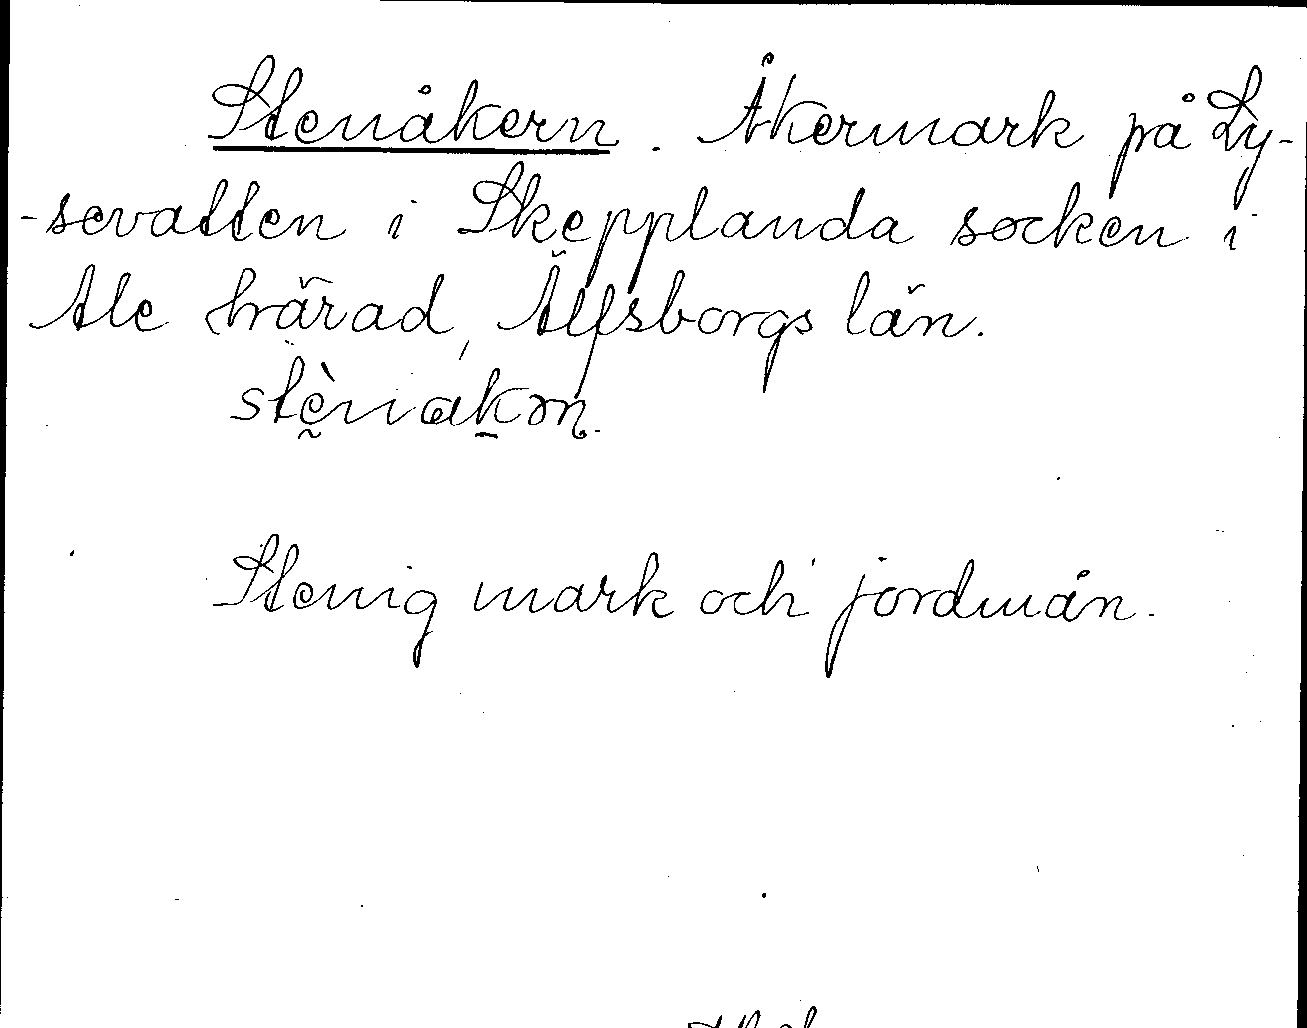 Stenåkern. Åkermark på Ly-
-sevatten i Skepplanda socken i
Ale härad, Älfsborgs län.
stḛ̀nak̲ɔn̥.
Stenig mark och jordmån.